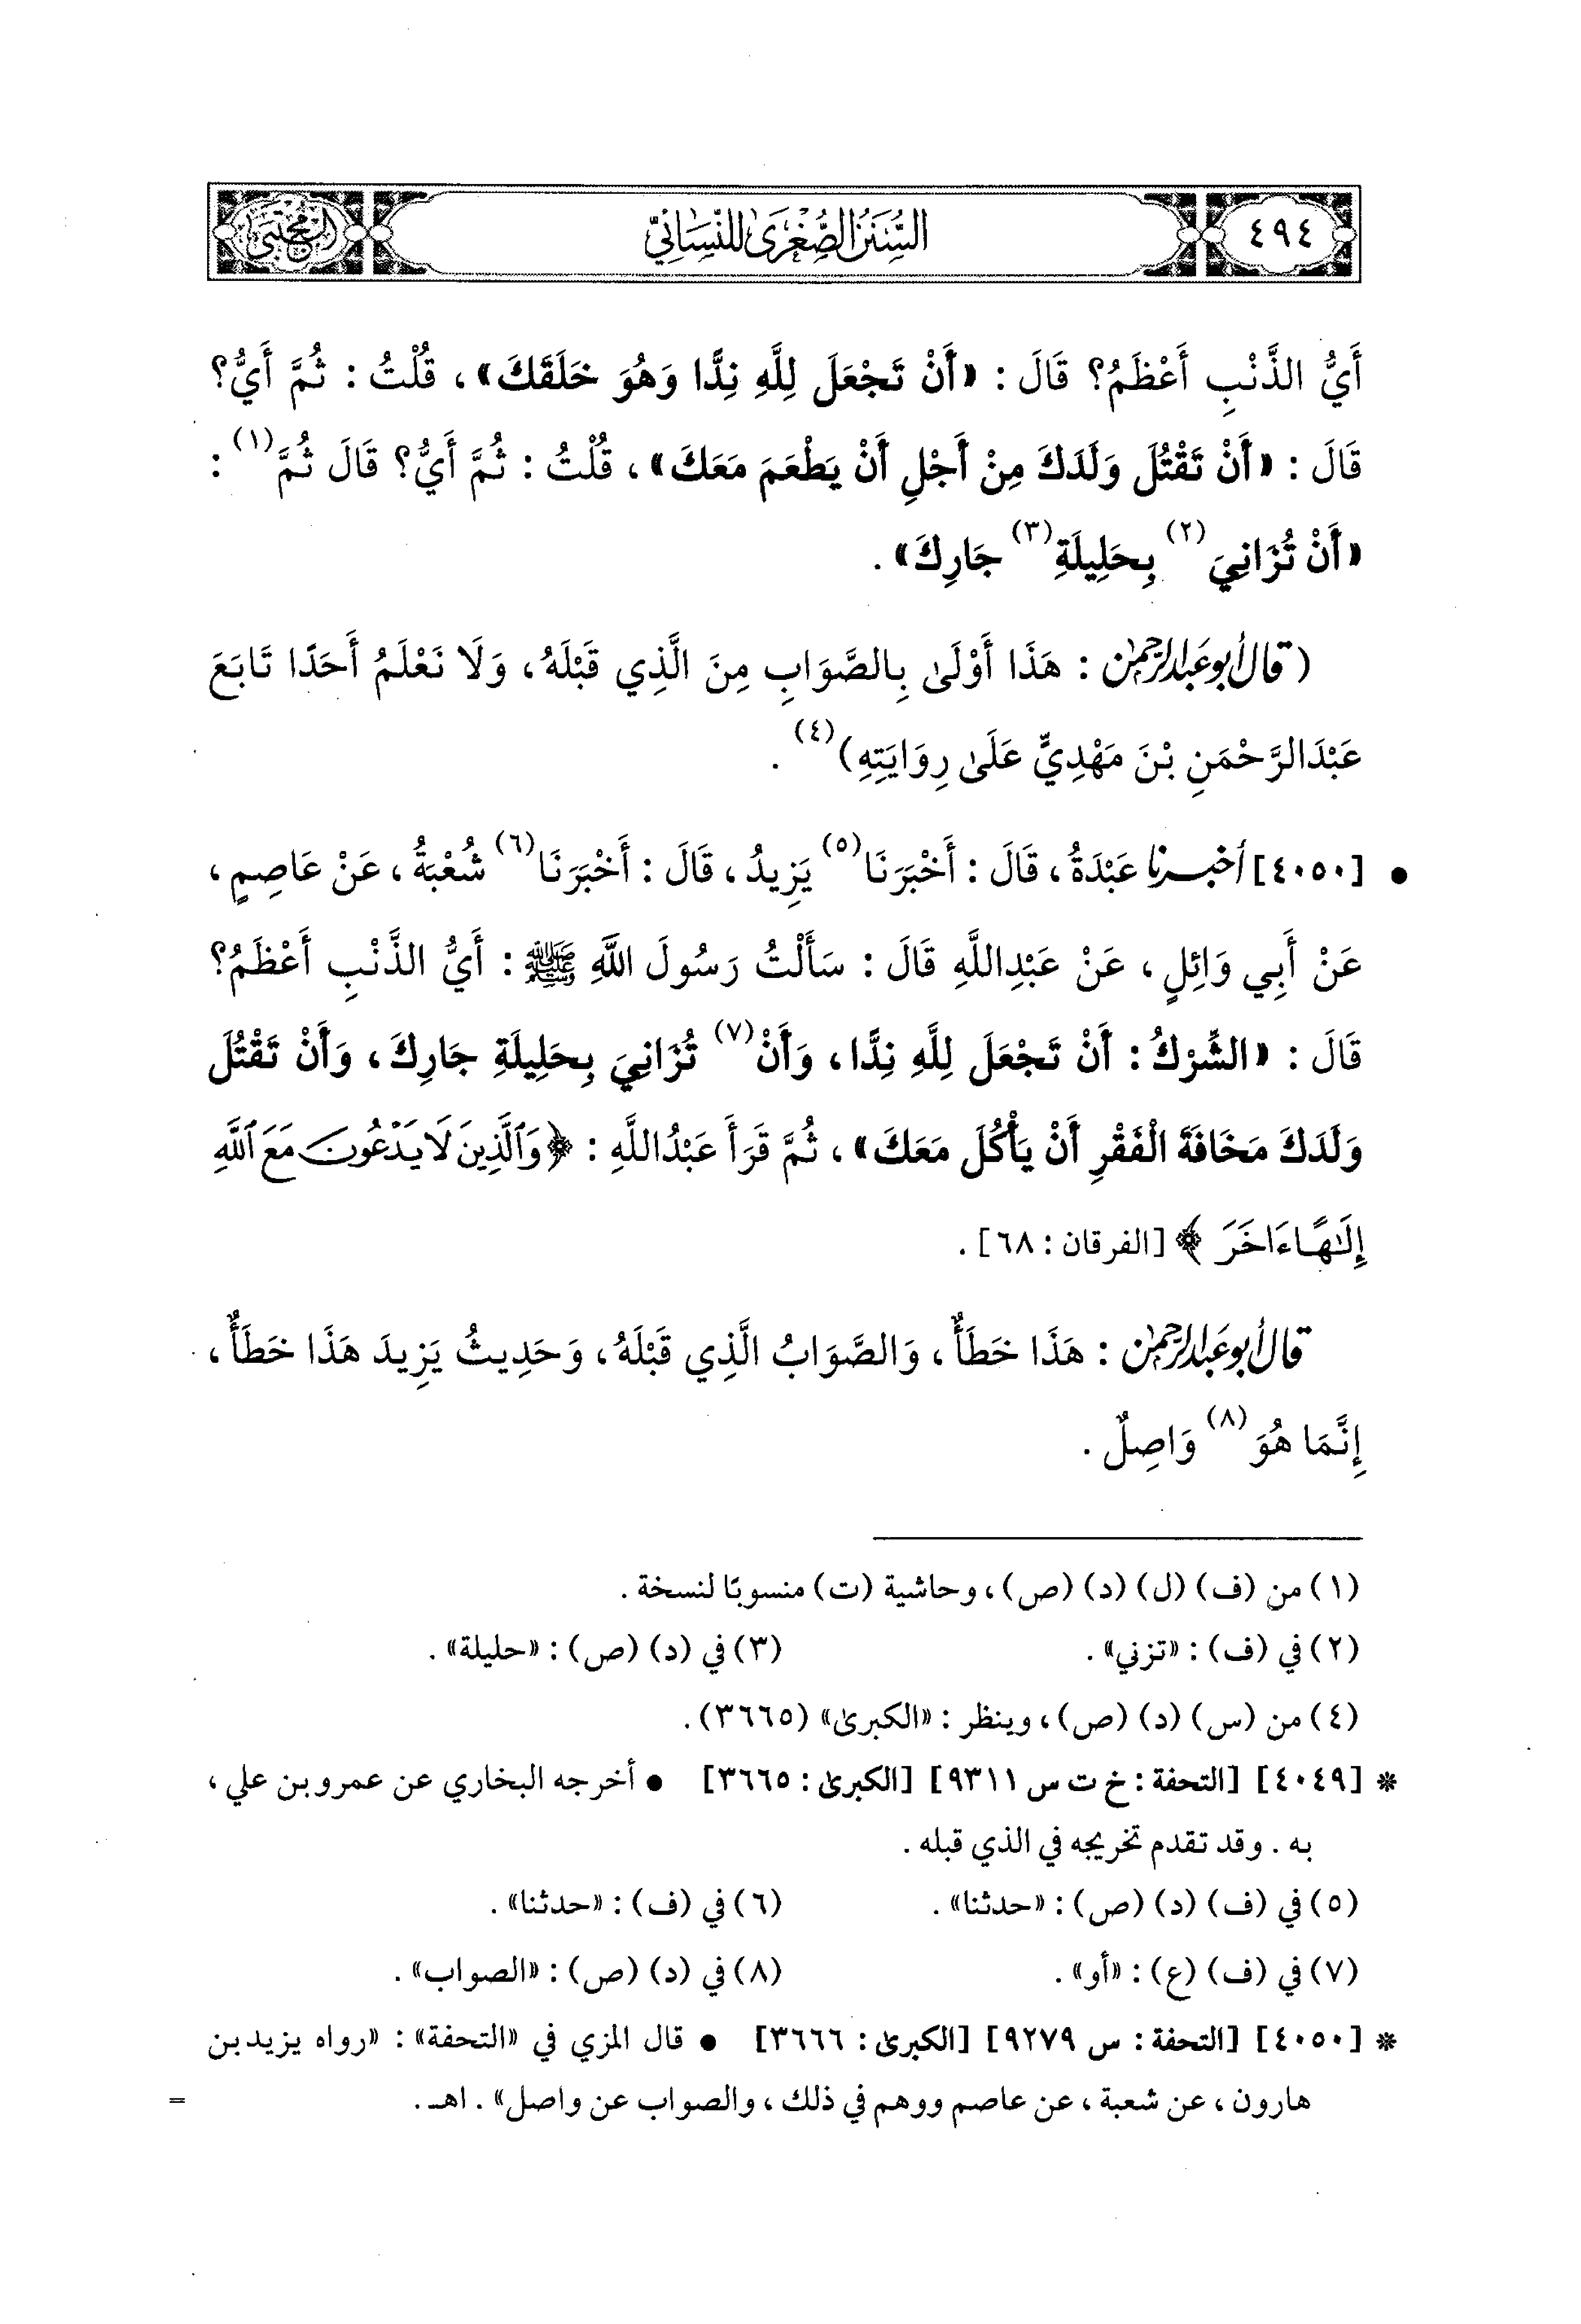 ٤٩٤
السُّنَنُ الصُّغْرَىٰ لِلنَّسَائِيِّ
المجتبى
أَيُّ الذَّنْبِ أَعْظَمُ؟ قَالَ : «أَنْ تَجْعَلَ لِلَّهِ نِدًّا وَهُوَ خَلَقَكَ» ، قُلْتُ : ثُمَّ أَيُّ؟
قَالَ : «أَنْ تَقْتُلَ وَلَدَكَ مِنْ أَجْلِ أَنْ يَطْعَمَ مَعَكَ» ، قُلْتُ : ثُمَّ أَيُّ؟ قَالَ ثُمَّ(١) :
«أَنْ تُزَانِيَ(٢) بِحَلِيلَةِ(٣) جَارِكَ» .
(قال أبو عبدالرحمن : هَذَا أَوْلَىٰ بِالصَّوَابِ مِنَ الَّذِي قَبْلَهُ ، وَلَا نَعْلَمُ أَحَدًا تَابَعَ
عَبْدَالرَّحْمَنِ بْنَ مَهْدِيٍّ عَلَىٰ رِوَايَتِهِ)(٤) .
• [٤٠٥٠] أخبرنا عَبْدَةُ ، قَالَ : أَخْبَرَنَا(٥) يَزِيدُ ، قَالَ : أَخْبَرَنَا(٦) شُعْبَةُ ، عَنْ عَاصِمٍ ،
عَنْ أَبِي وَائِلٍ ، عَنْ عَبْدِاللَّهِ قَالَ : سَأَلْتُ رَسُولَ اللَّهِ ﷺ : أَيُّ الذَّنْبِ أَعْظَمُ؟
قَالَ : «الشِّرْكُ : أَنْ تَجْعَلَ لِلَّهِ نِدًّا ، وَأَنْ(٧) تُزَانِيَ بِحَلِيلَةِ جَارِكَ ، وَأَنْ تَقْتُلَ
وَلَدَكَ مَخَافَةَ الْفَقْرِ أَنْ يَأْكُلَ مَعَكَ» ، ثُمَّ قَرَأَ عَبْدُاللَّهِ : ﴿وَٱلَّذِينَ لَا يَدْعُونَ مَعَ ٱللَّهِ
إِلَٰهًا ءَاخَرَ﴾ [الفرقان : ٦٨] .
قال أبو عبدالرحمن : هَذَا خَطَأٌ ، وَالصَّوَابُ الَّذِي قَبْلَهُ ، وَحَدِيثُ يَزِيدَ هَذَا خَطَأٌ ،
إِنَّمَا هُوَ(٨) وَاصِلٌ .
(١) من (ف) (ل) (د) (ص) ، وحاشية (ت) منسوبًا لنسخة .
(٢) في (ف) : «تزني» . (٣) في (د) (ص) : «حليلة» .
(٤) من (س) (د) (ص) ، وينظر : «الكبرىٰ» (٣٦٦٥) .
* [٤٠٤٩] [التحفة : خ ت س ٩٣١١] [الكبرىٰ : ٣٦٦٥] • أخرجه البخاري عن عمرو بن علي ،
به . وقد تقدم تخريجه في الذي قبله .
(٥) في (ف) (د) (ص) : «حدثنا» . (٦) في (ف) : «حدثنا» .
(٧) في (ف) (ع) : «أو» . (٨) في (د) (ص) : «الصواب» .
* [٤٠٥٠] [التحفة : س ٩٢٧٩] [الكبرىٰ : ٣٦٦٦] • قال المزي في «التحفة» : «رواه يزيد بن
هارون ، عن شعبة ، عن عاصم ووهم في ذلك ، والصواب عن واصل» . اهـ . =